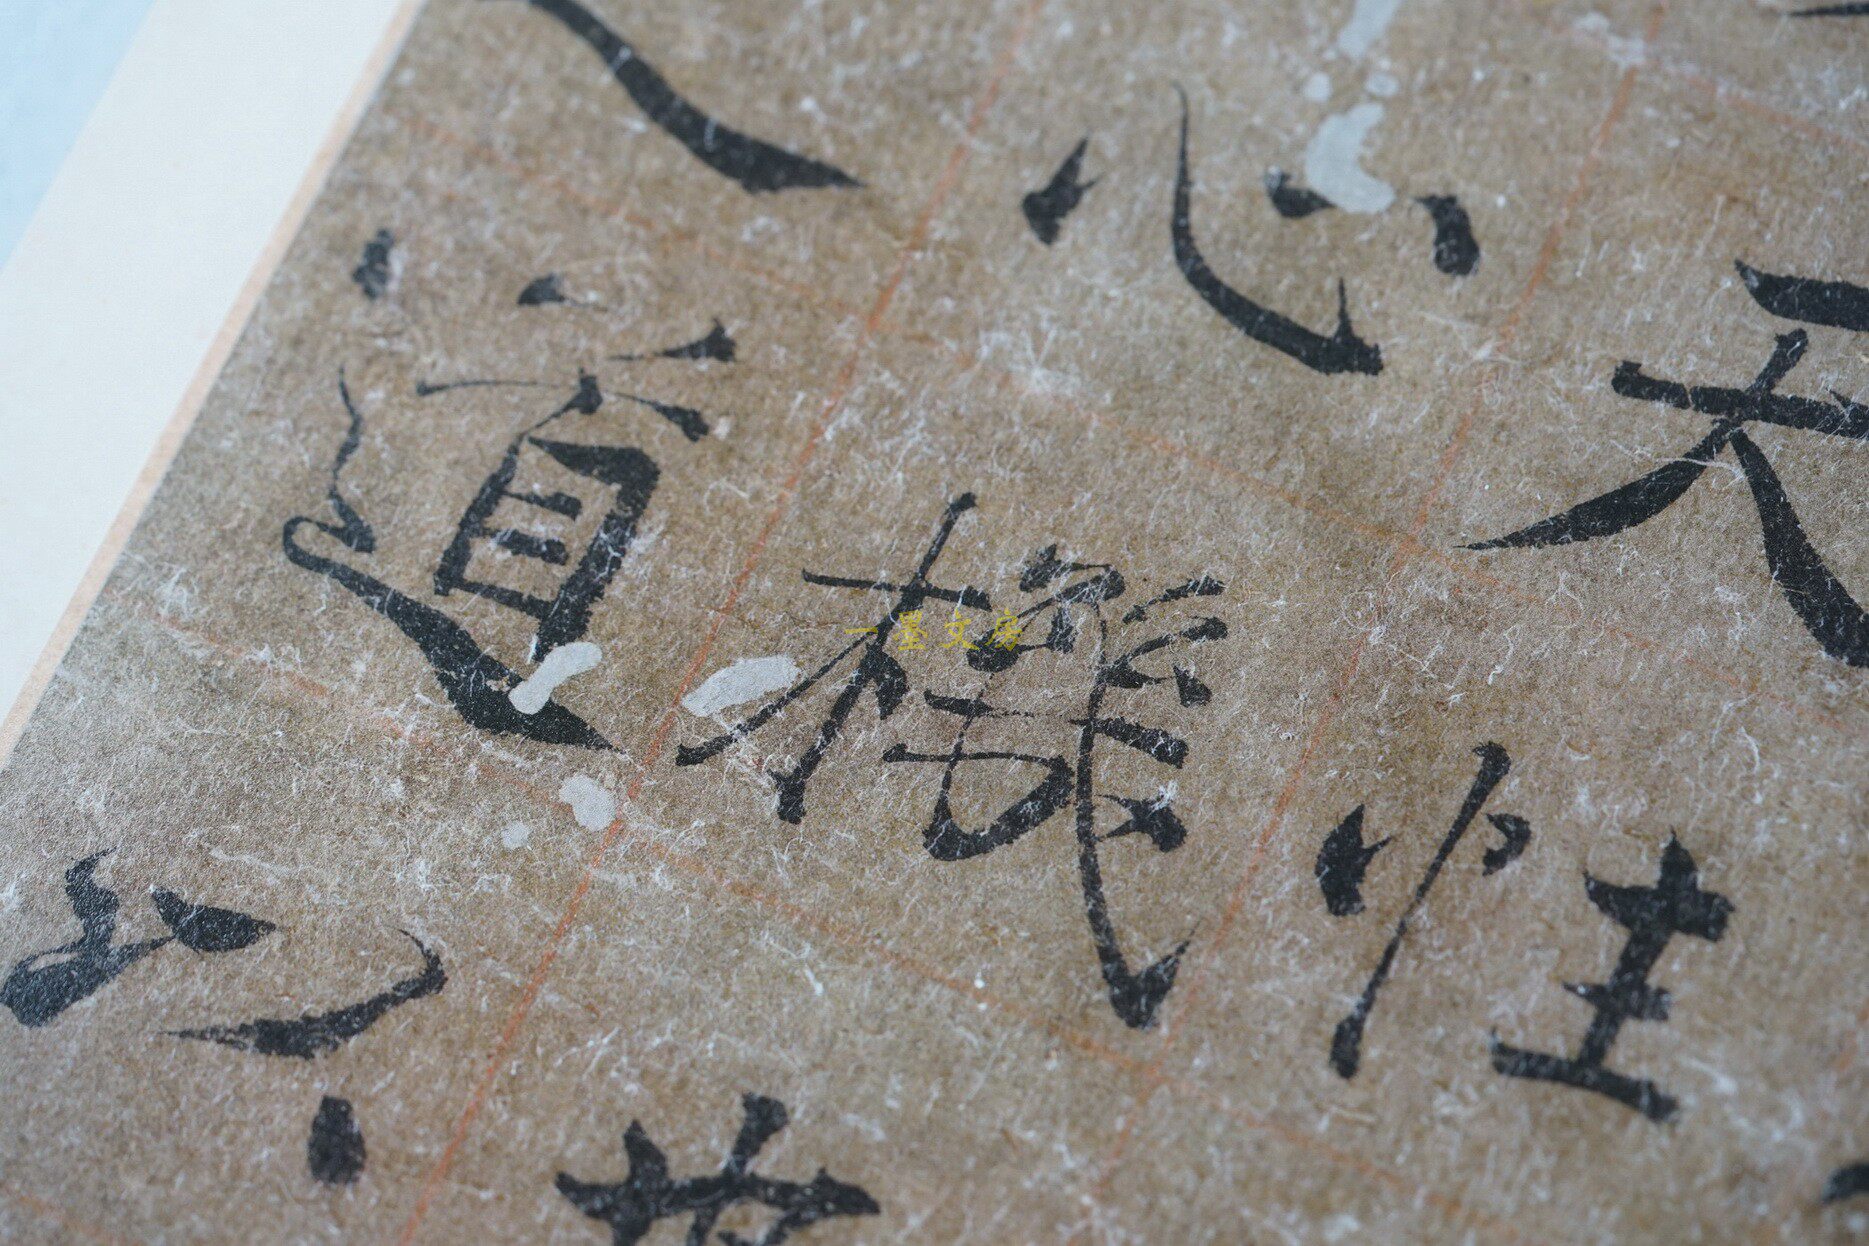 天性
心機
道以
一墨文房